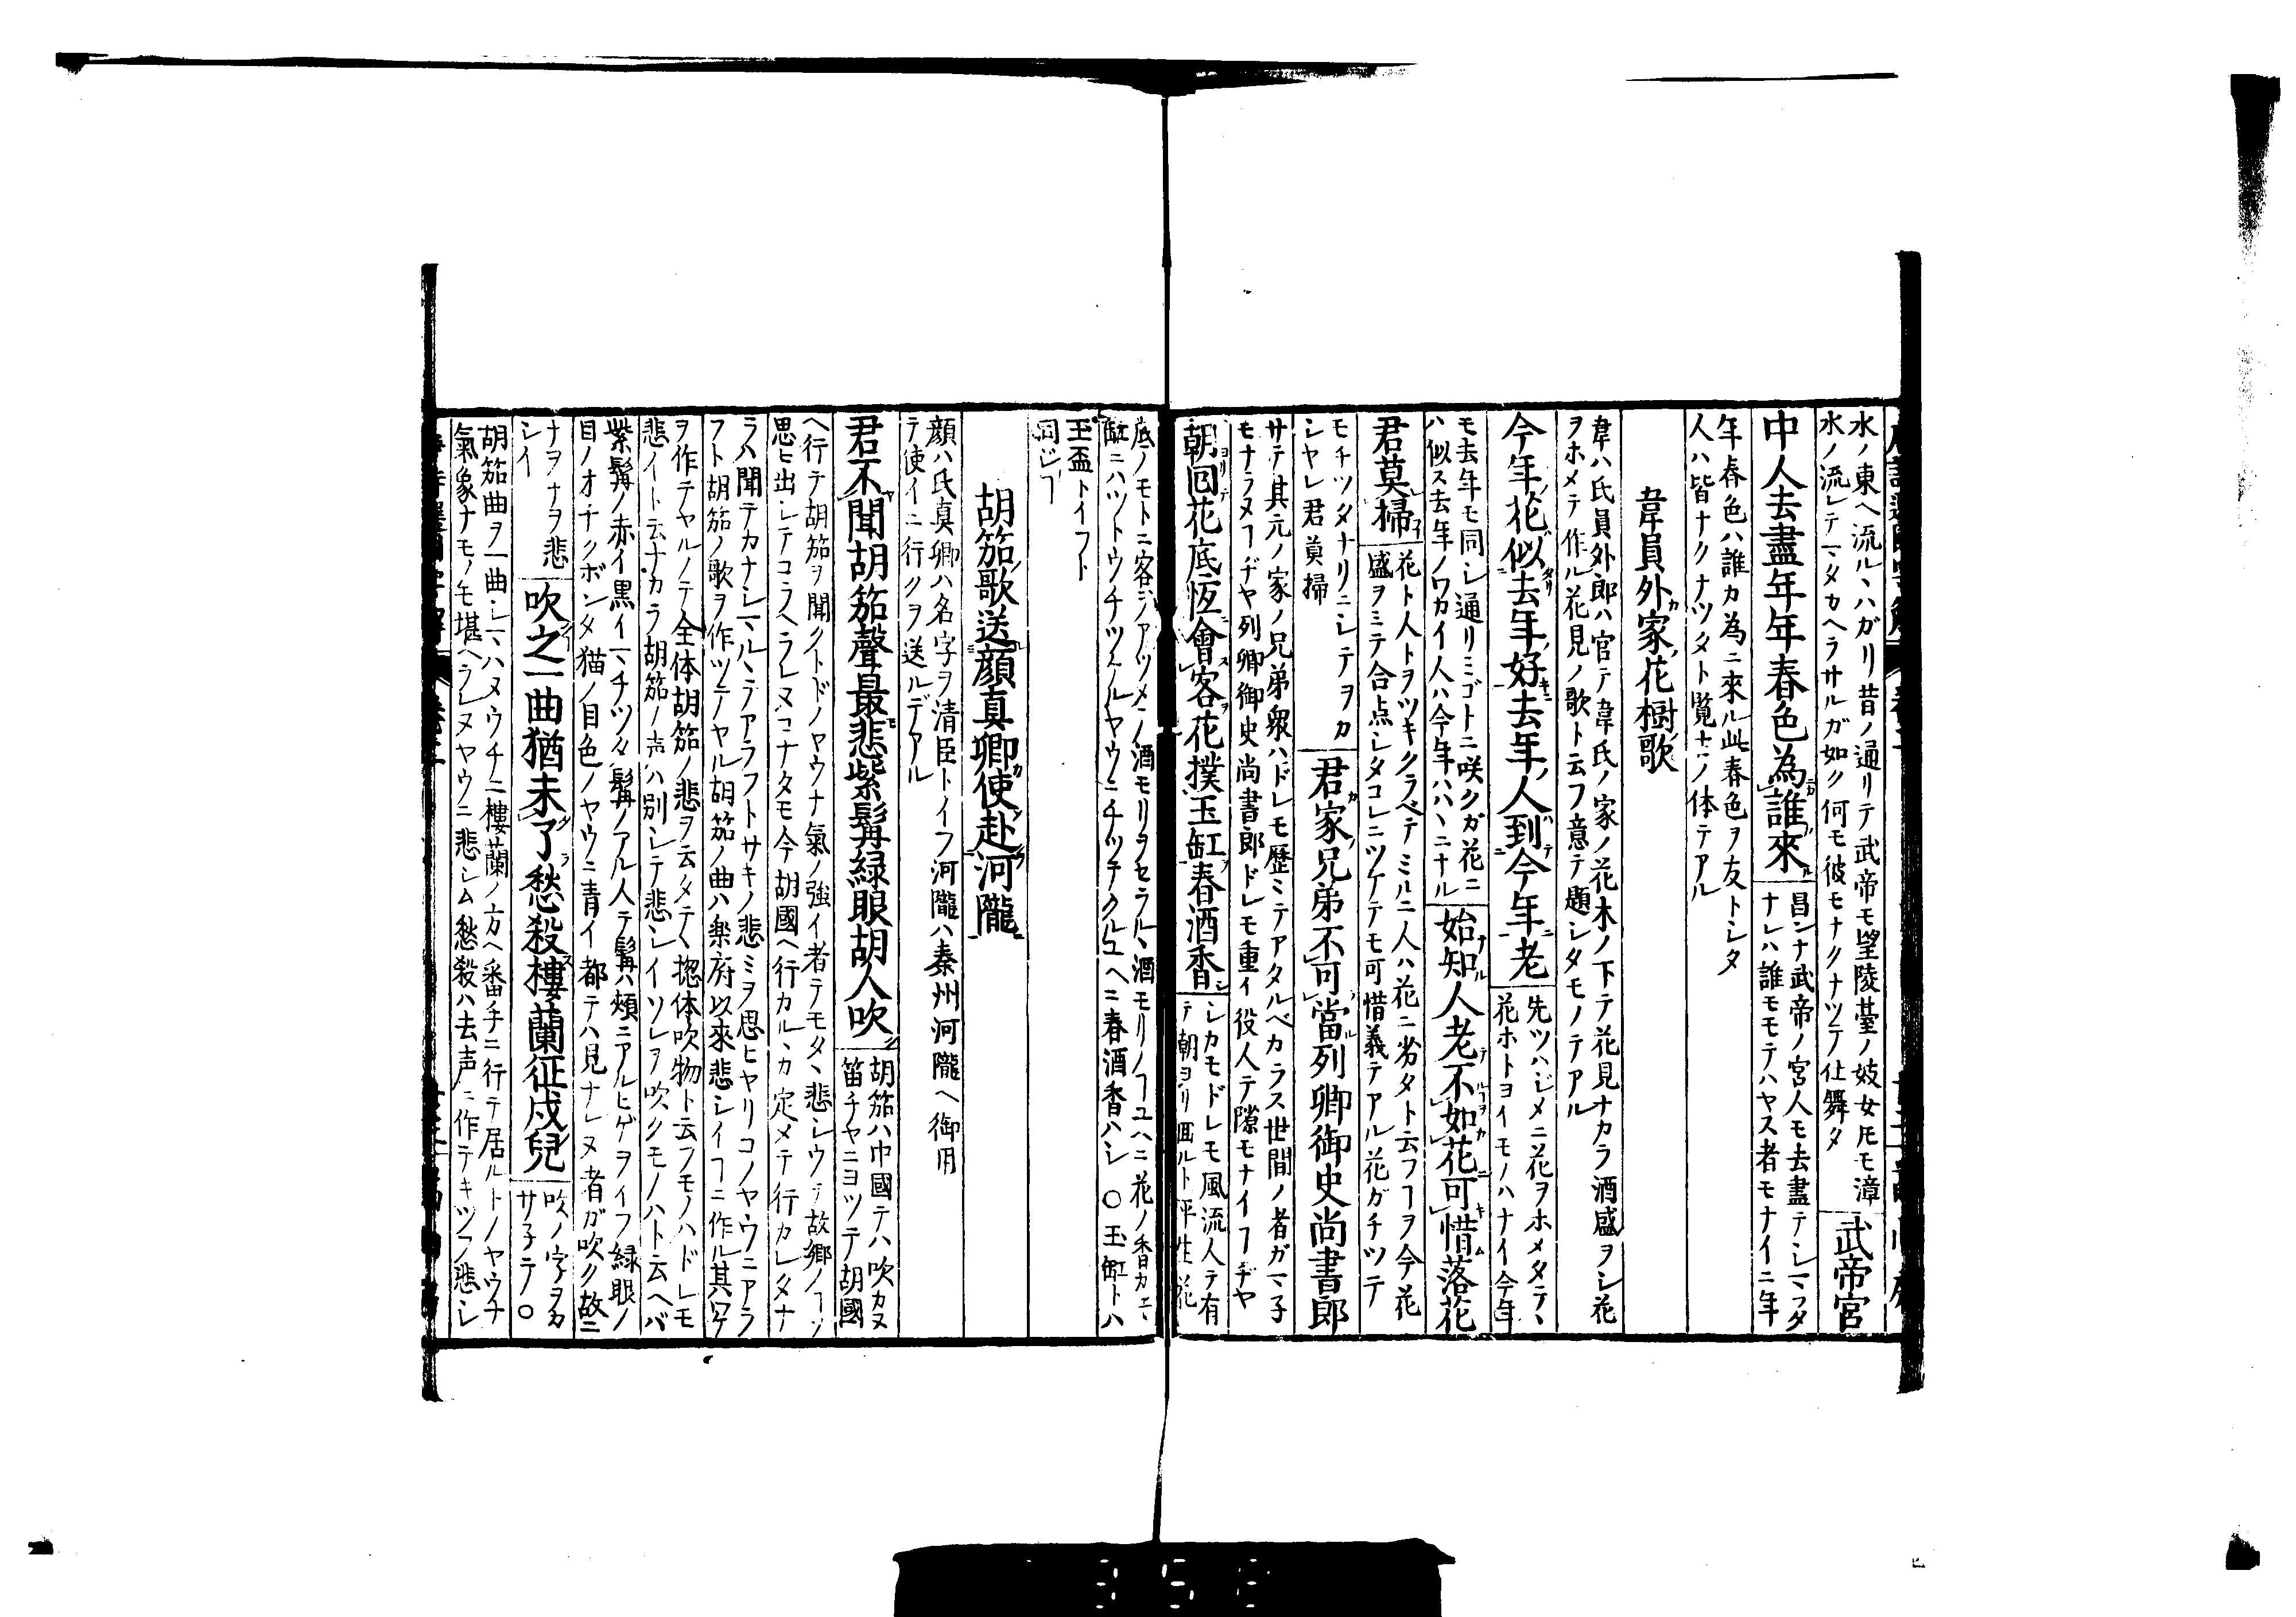 水ノ東ヘ流ルヽハガリ昔ノ通リテ武帝モ望陵䑓ノ妓女𪜈モ漳
水ノ流レテ一タカヘラサルガ如ク何モ彼モナクナツテ仕舞タ
武帝宮
中人去盡年年春色為誰來
昌ンナ武帝ノ宮人モ去盡テレマフタ
ナレハ誰モモテハヤス者モナイニ年
年春色ハ誰カ為ニ來ル此春色ヲ友トシタ
人ハ皆ナクナツタト覧古ノ体テアル
韋員外家花樹歌
韋ハ氏員外郎ハ官テ韋氏ノ家ノ花木ノ下テ花見ナカラ酒盛ヲシ花
ヲホメテ作ル花見ノ歌ト云フ意テ題シタモノテアル
今年花似去年好去年人到今年老
先ツハジメニ花ヲホメタテヽ
花ホトヨイモノハナイ今年
モ去年モ同シ通リミゴトニ咲クガ花ニ
ハ似ス去年ノワカイ人ハ今年ハハヽニナル
始知人老不如花可惜落花
君莫掃
花ト人トヲツキクラベテミルニ人ハ花ニ劣タト云フヿヲ今花
盛ヲミテ合点シタコレニツケテモ可惜義テアル花ガチツテ
モチツタナリニシテヲカ
シヤレ君莫掃
君家兄弟不可當列卿御史尚書郎
サテ其元ノ家ノ兄弟衆ハドレモ歴ミテアタルベカラス世間ノ者ガマ子
モナラヌヿヂヤ列卿御史尚書郎ドレモ重イ役人テ隙モナイヿヂヤ
朝回花底恆會客花撲玉缸春酒香
シカモドレモ風流人テ有
テ朝ヨリ回ルト平生花
底ノモトニ客ヲアツメテ酒モリヲセラルヽ酒モリノヿユヘニ花ノ香カヱヽ
缸ニハツトウチツケルヤウニチツテクルユヘニ春酒香ハシ 〇玉缸トハ
玉盃トイフト
同シヿ
胡笳歌送顔真卿使赴河隴
顔ハ氏真卿ハ名字ヲ清臣トイフ河隴ハ秦州河隴ヘ御用
テ使イニ行クヲ送ルデアル
君不聞胡笳聲最悲紫髯緑眼胡人吹
胡笳ハ中國テハ吹カヌ
笛チヤニヨツテ胡國
ヘ行テ胡笳ヲ聞クトドノヤウナ氣ノ強イ者テモタヽ悲シウテ故郷ノヿヲ
思ヒ出シテコラヘラレヌコナタモ今胡國ヘ行カルヽカ定メテ行カレタナ
ラハ聞テカナシマルヽテアラフトサキノ悲ミヲ思ヒヤリコノヤウニアラ
フト胡笳ノ歌ヲ作ツテヤル胡笳ノ曲ハ樂府以來悲シイヿニ作ル其冩
ヲ作テヤルノテ全体胡笳ノ悲ヲ云メテ惣体吹物ト云フモノハドレモ
悲イト云ナカラ胡笳ノ声ハ別シテ悲シイソレヲ吹クモノハト云ヘバ
紫髯ノ赤イ黒イマチツタ髯ノアル人テ髯ハ頬ニアルヒゲヲイフ緑眼ノ
目ノオチクボンタ猫ノ目色ノヤウニ青イ都テハ見ナレヌ者ガ吹ク故ニ
ナヲナヲ悲
シイ
吹之一曲猶未了愁殺樓蘭征戍兒
吹ノ字ヲカ
サ子テ〇
胡笳曲ヲ一曲シマハヌウチニ樓蘭ノ方ヘ番手ニ行テ居ルトノヤウナ
氣象ナモノモ堪ヘラレヌヤウニ悲シム愁殺ハ去声ニ作テキツフ悲シ